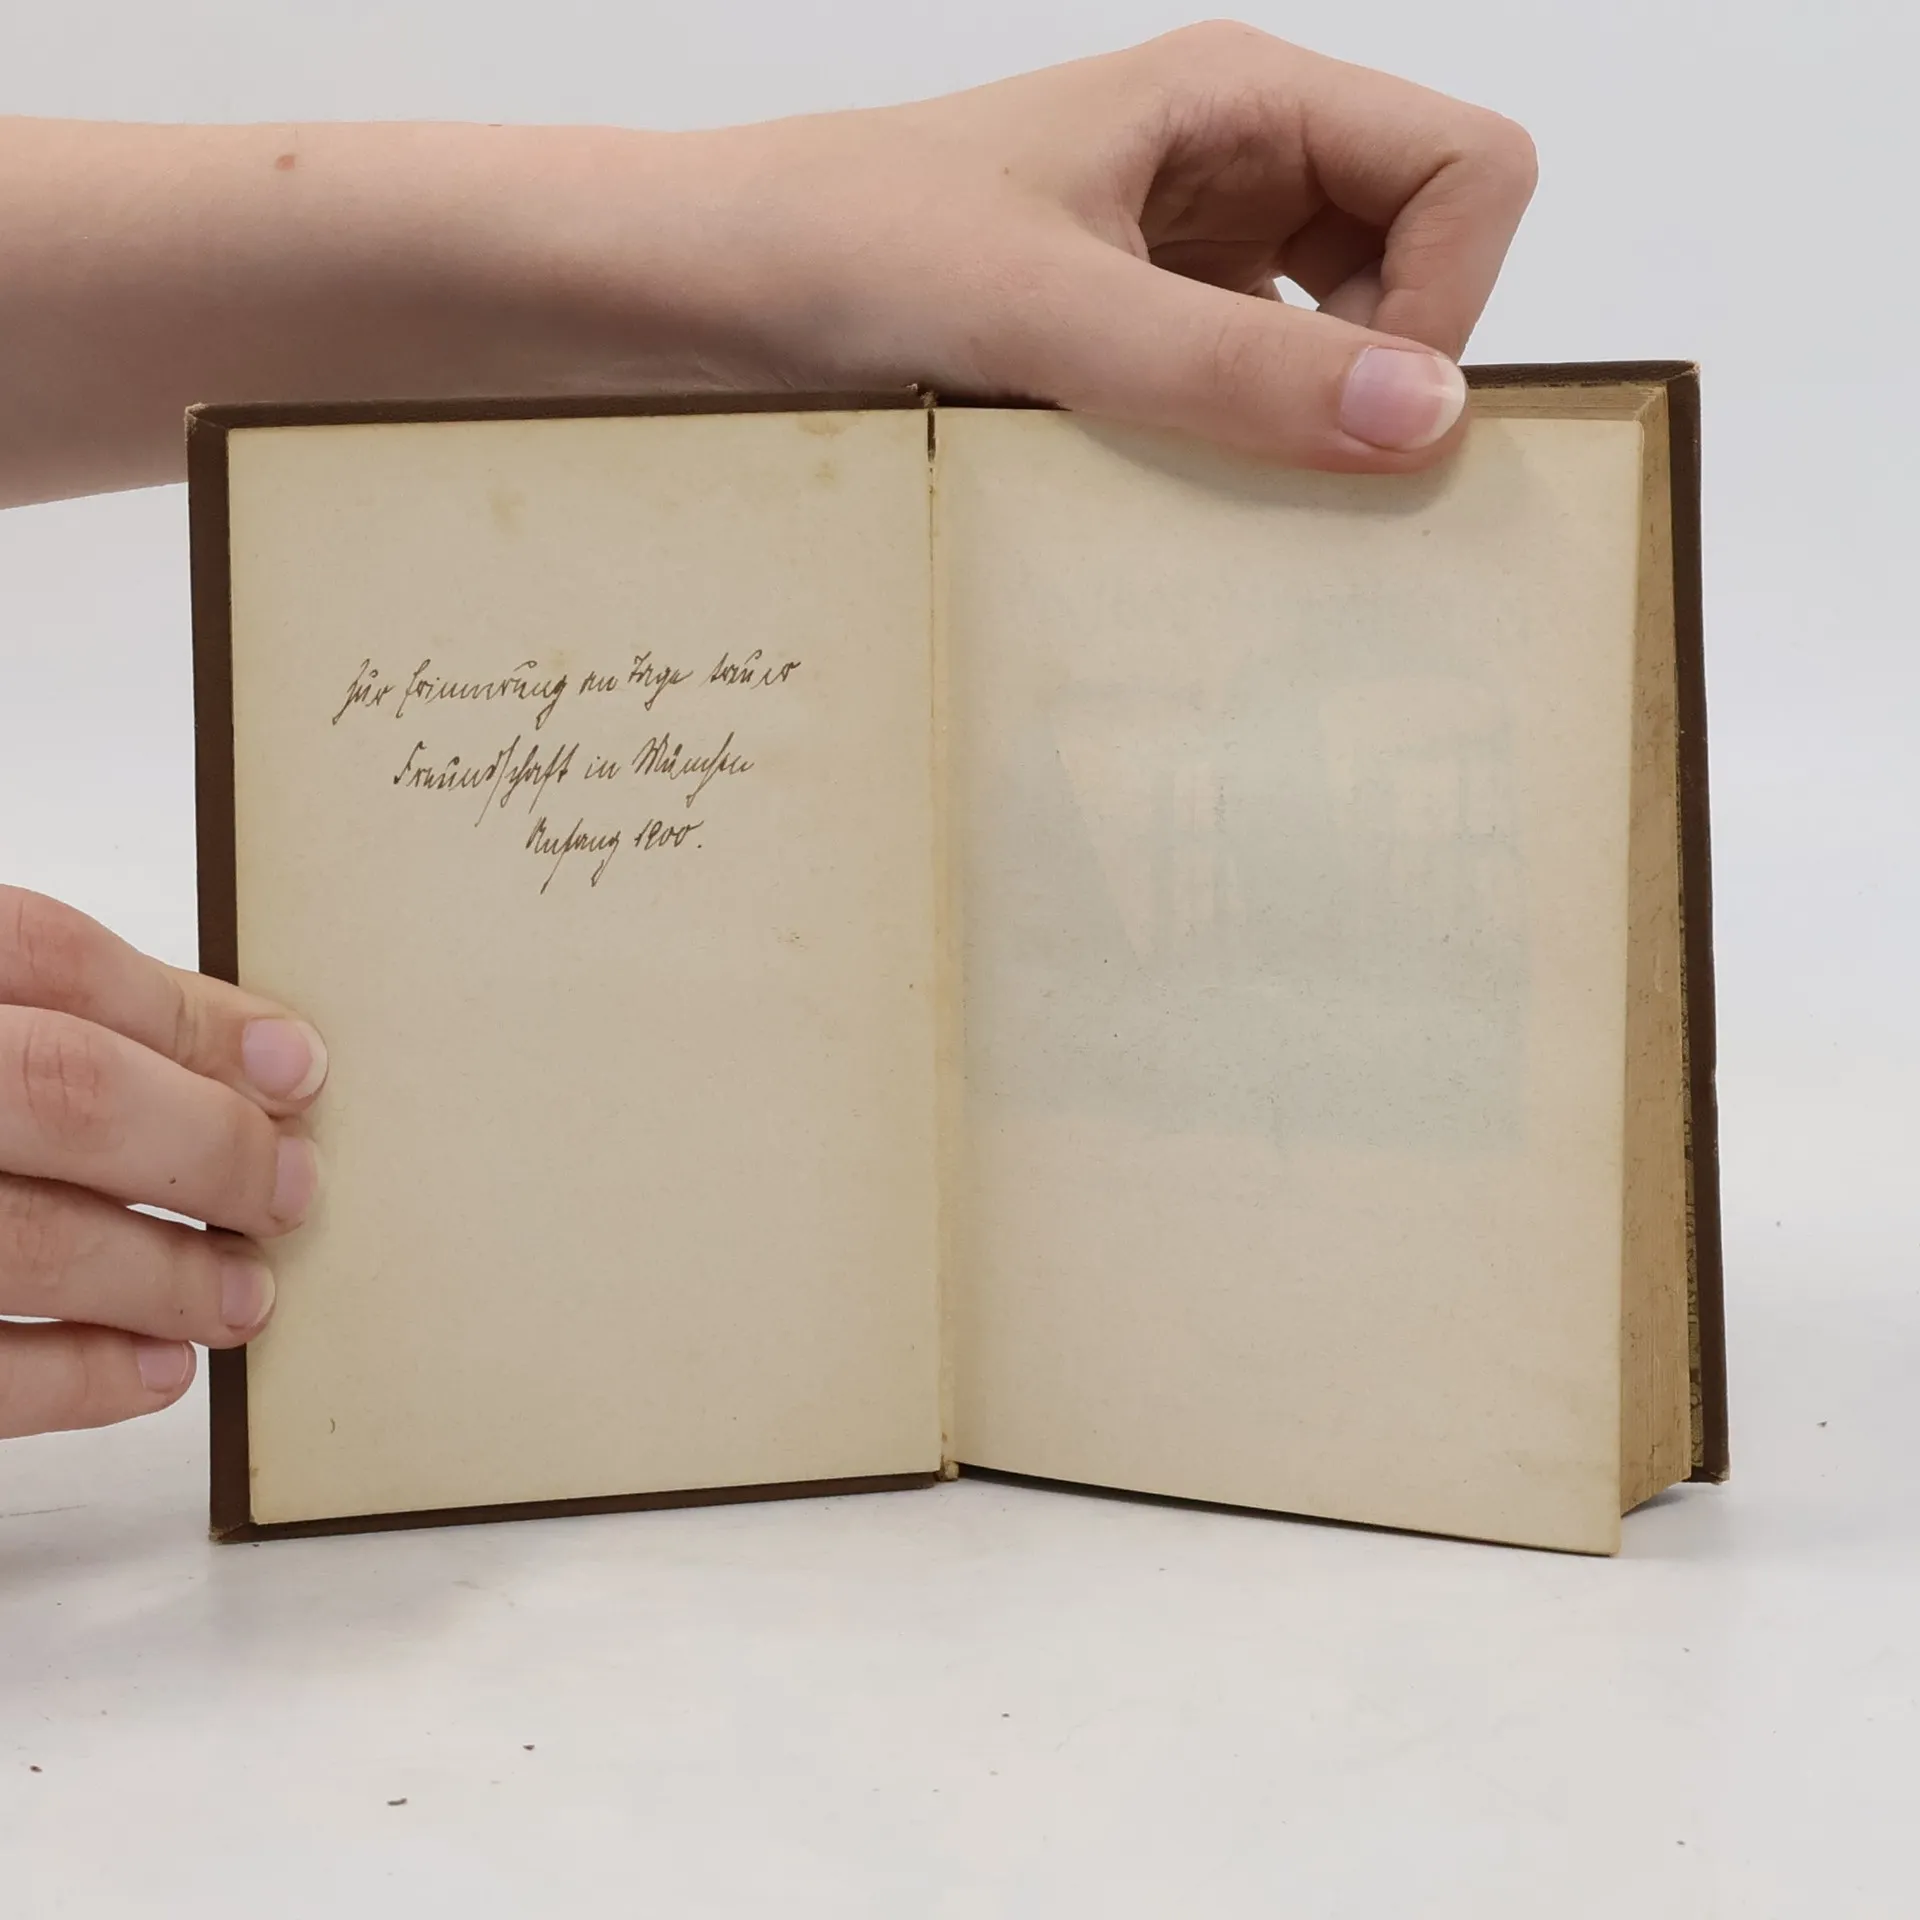 Zur Erinnerung an Tage treuer
Freundschaft in München
Anfang 1900.